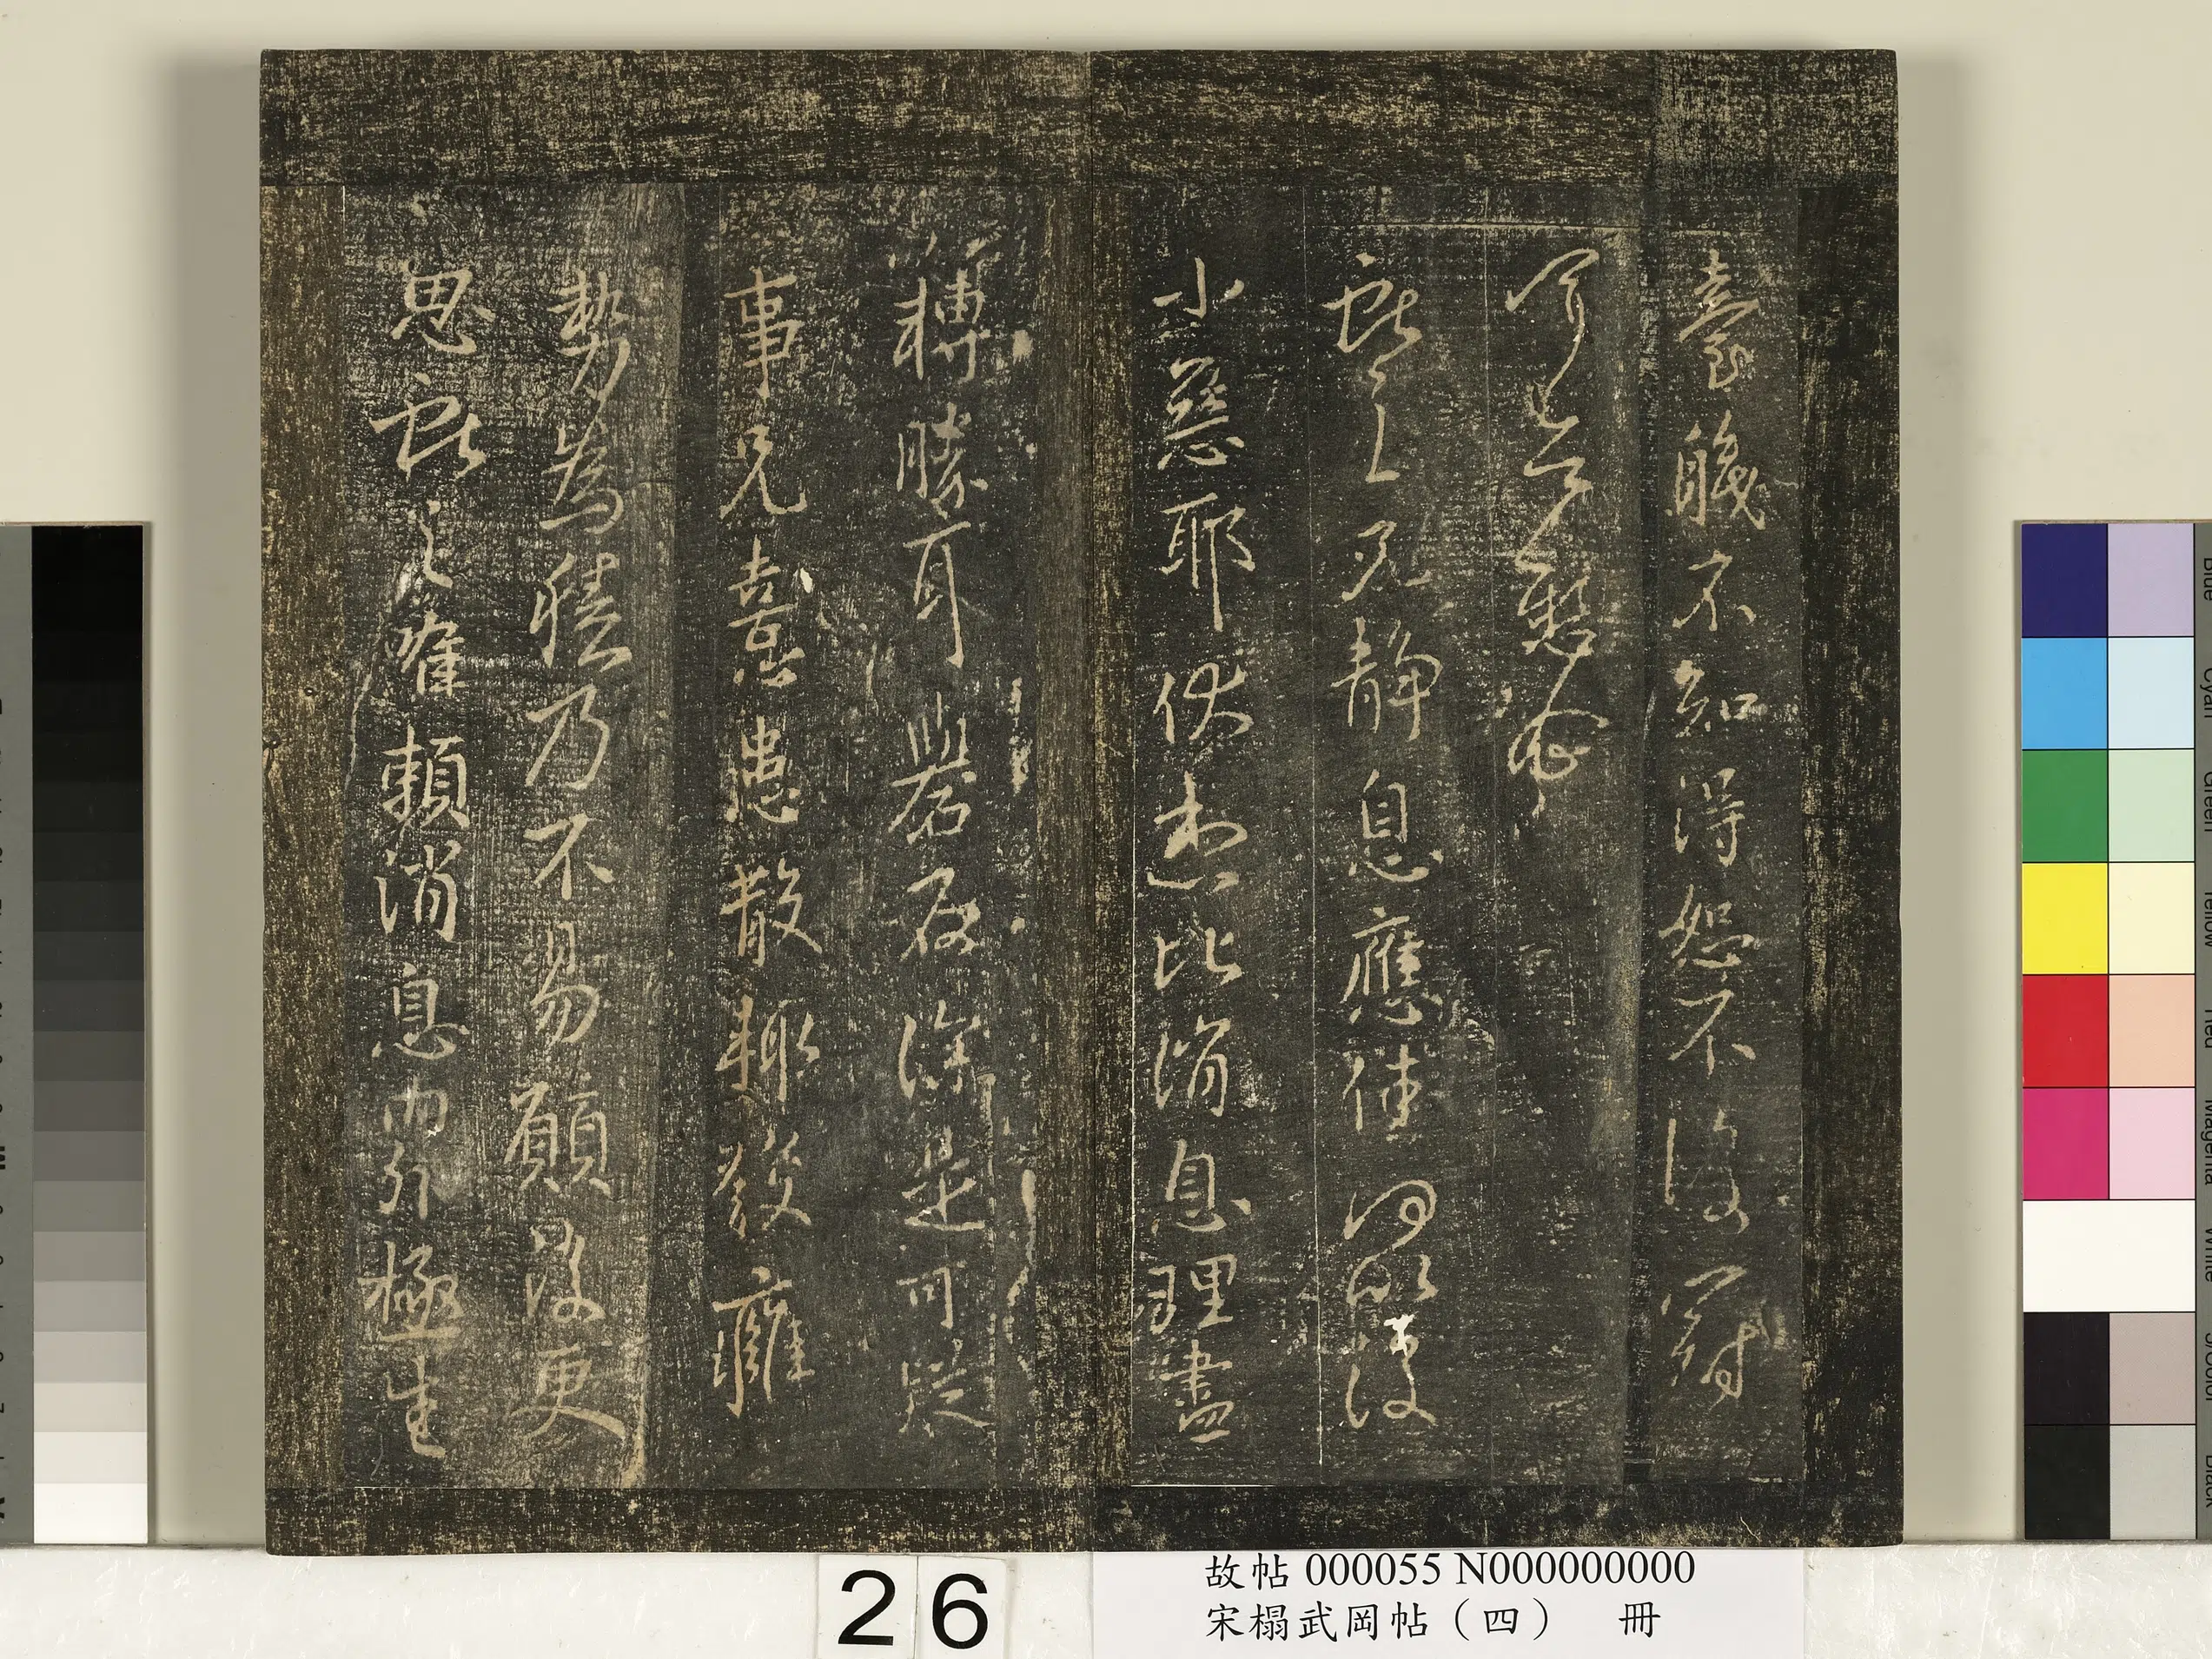 臺職不知得恕不後
獻之兄靜息應佳何以復
小惡耶伏想比消息理盡
轉勝耳礜石深是可疑
事兄憙患散輒發癰
熱為積乃不易願復更
思獻之唯賴消息內外極生
26
故帖 000055 N000000000
宋榻武岡帖（四） 冊
Blue
Cyan
Green
Yellow
Red
Magenta
White
3/Color
Black